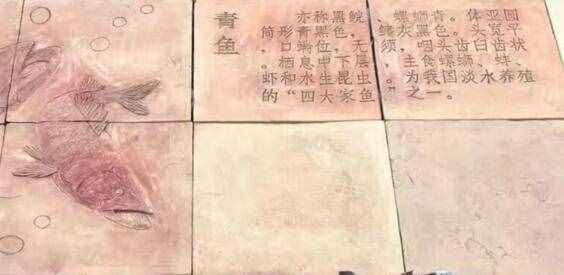 青鱼
亦称黑鲩、螺蛳青。体亚圆
筒形青黑色，鳍灰黑色。头宽平
，口端位，无须，咽头齿臼齿状
。栖息中下层，主食螺蛳、蚌、
虾和水生昆虫。为我国淡水养殖
的“四大家鱼”之一。